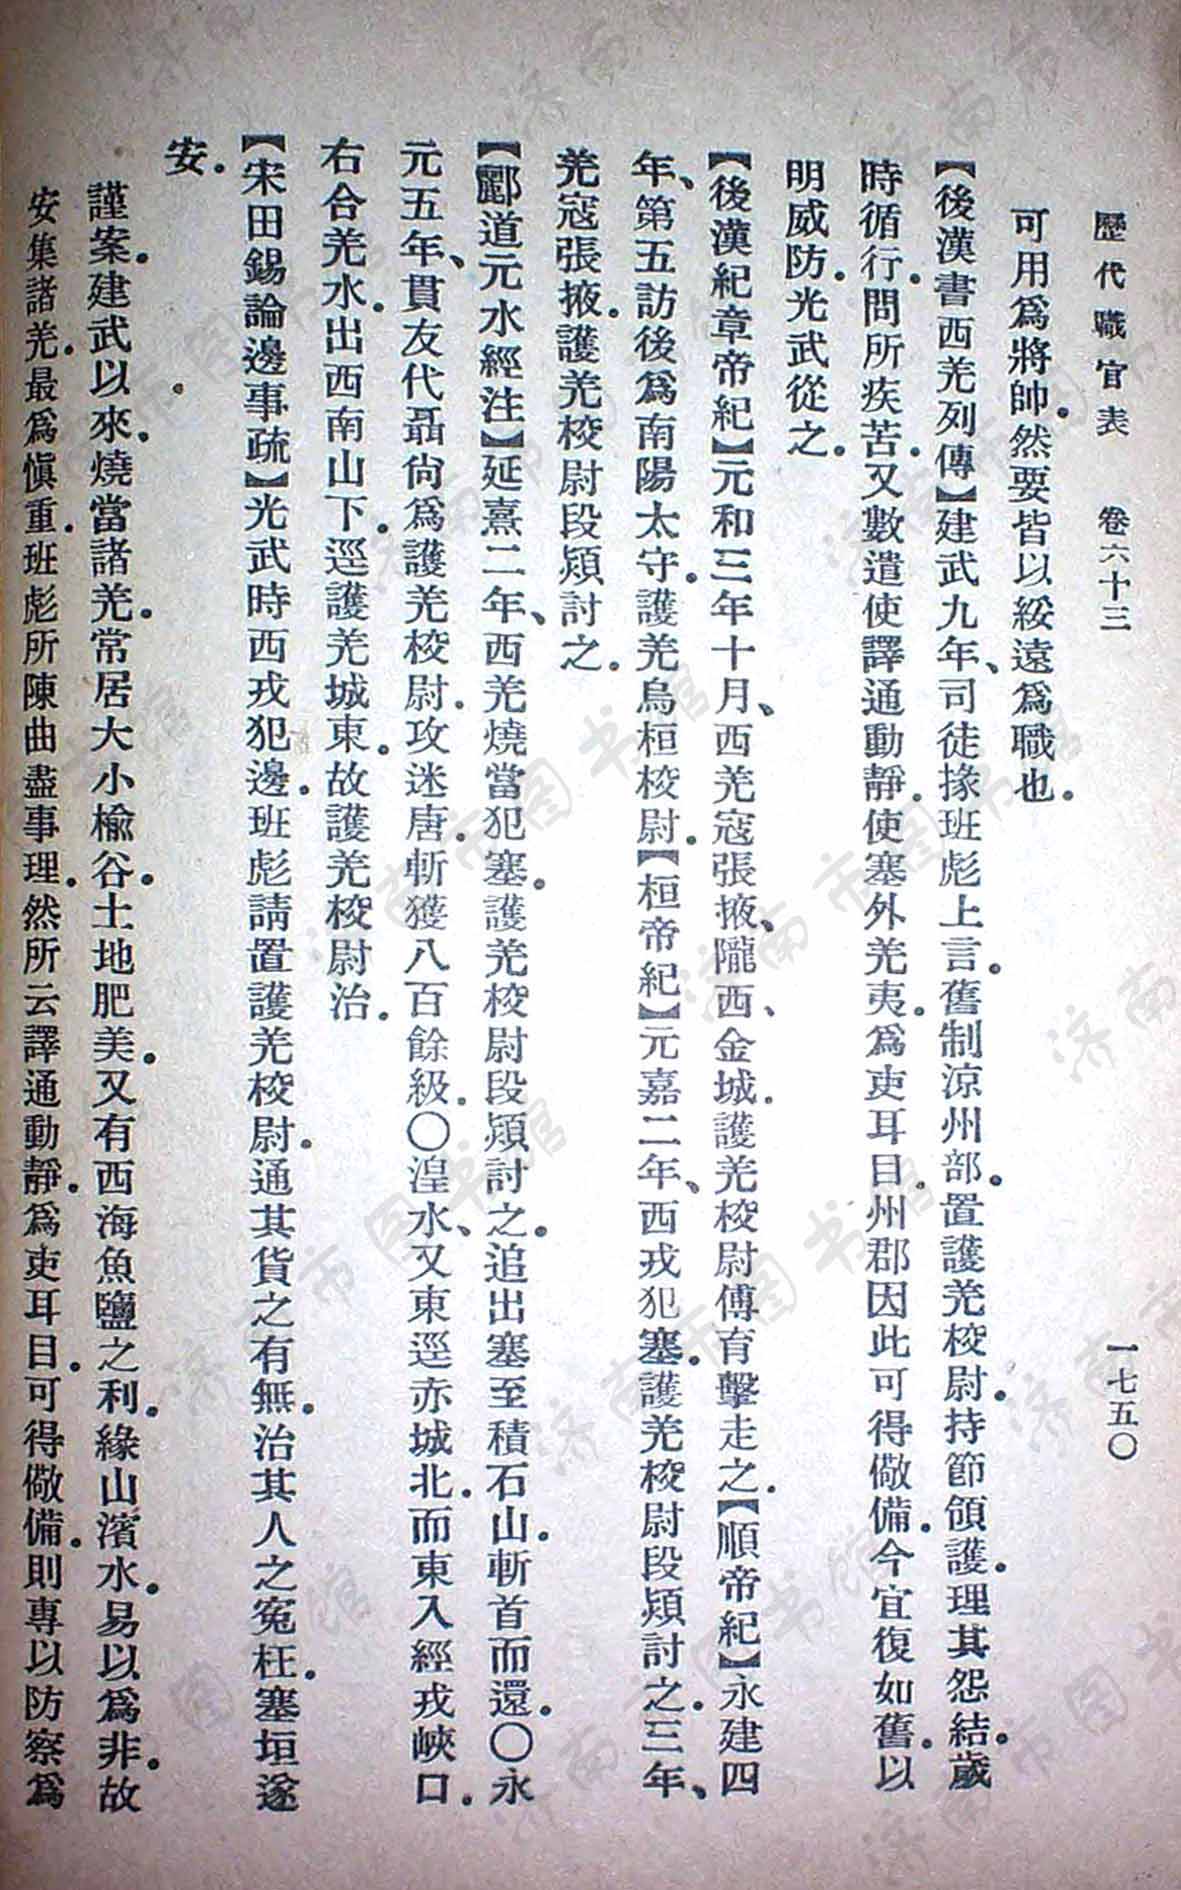 歷代職官表　卷六十三　一七五〇
可用爲將帥。然要皆以綏遠爲職也。
【後漢書西羌列傳】建武九年、司徒掾班彪上言。舊制涼州部。置護羌校尉。持節領護。理其怨結。歲
時循行。問所疾苦。又數遣使譯通動靜。使塞外羌夷。爲吏耳目。州郡因此可得儆備。今宜復如舊。以
明威防。光武從之。
【後漢紀章帝紀】元和三年十月、西羌寇張掖、隴西、金城。護羌校尉傅育擊走之。【順帝紀】永建四
年、第五訪後爲南陽太守。護羌烏桓校尉。【桓帝紀】元嘉二年、西戎犯塞。護羌校尉段熲討之。三年、
羌寇張掖。護羌校尉段熲討之。
【酈道元水經注】延熹二年、西羌燒當犯塞。護羌校尉段熲討之。追出塞至積石山。斬首而還。〇永
元五年、貫友代聶尙爲護羌校尉。攻迷唐。斬獲八百餘級。〇湟水、又東逕赤城北。而東入經戎峽口。
右合羌水。出西南山下。逕護羌城東。故護羌校尉治。
【宋田錫論邊事疏】光武時西戎犯邊。班彪請置護羌校尉。通其貨之有無。治其人之冤枉。塞垣遂
安。
謹案。建武以來。燒當諸羌。常居大小楡谷。土地肥美。又有西海魚鹽之利。緣山濱水。易以爲非。故
安集諸羌。最爲愼重。班彪所陳曲盡事理。然所云譯通動靜。爲吏耳目。可得儆備。則專以防察爲
济南市图书馆